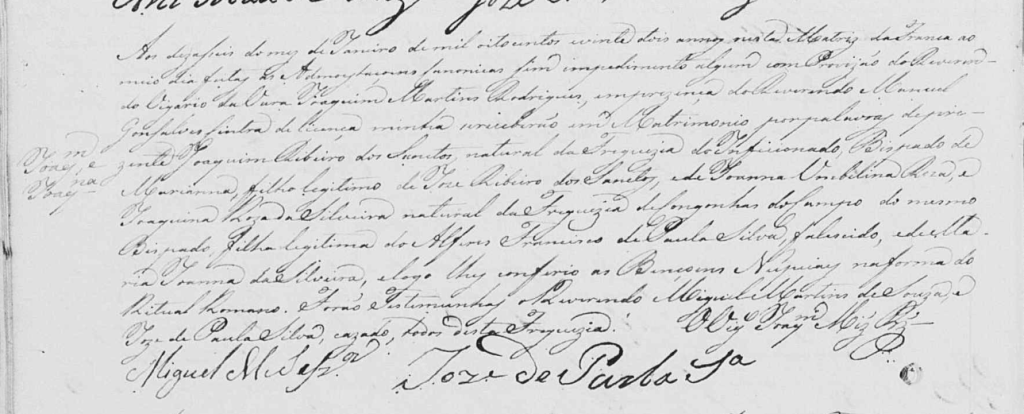 Joaq.m e
Joaq.na
Aos dezaseis do mez de Janeiro de mil oito centos e vinte dois annos nesta Matris da Franca ao
meio dia feitas as Admoestacoens Canonicas sem impedimento algum com Provizão do Reveren-
do Vigario da Vara Joaquim Martins Rodrigues, em prezença do Reverendo Manuel
Gonsalves Cintra de licença minha se receberão em Matrimonio por palavras de pre-
zente Joaquim Ribeiro dos Santos, natural da Freguezia do Inficionado, Bispado de
Marianna, filho legitimo de Joze Ribeiro dos Santos, e de Joanna Umbilina Roza, e
Joaquina Roza da Silveira natural da Freguezia de Congonhas do Campo do mesmo
Bispado, filha legitima do Alferes Francisco de Paula Silva, falescido, e de Ma-
ria Joanna da Silveira, e logo lhes conferio as Bençoens Nupciaes na forma do
Ritual Romano. Forão Testimunhas o Reverendo Miguel Martins de Souza, e
Joze de Paula Silva, cazado, todos desta Freguezia.
O Vig.o Joaq.m Miz Rz
Miguel M.
Joze de Paula S.a